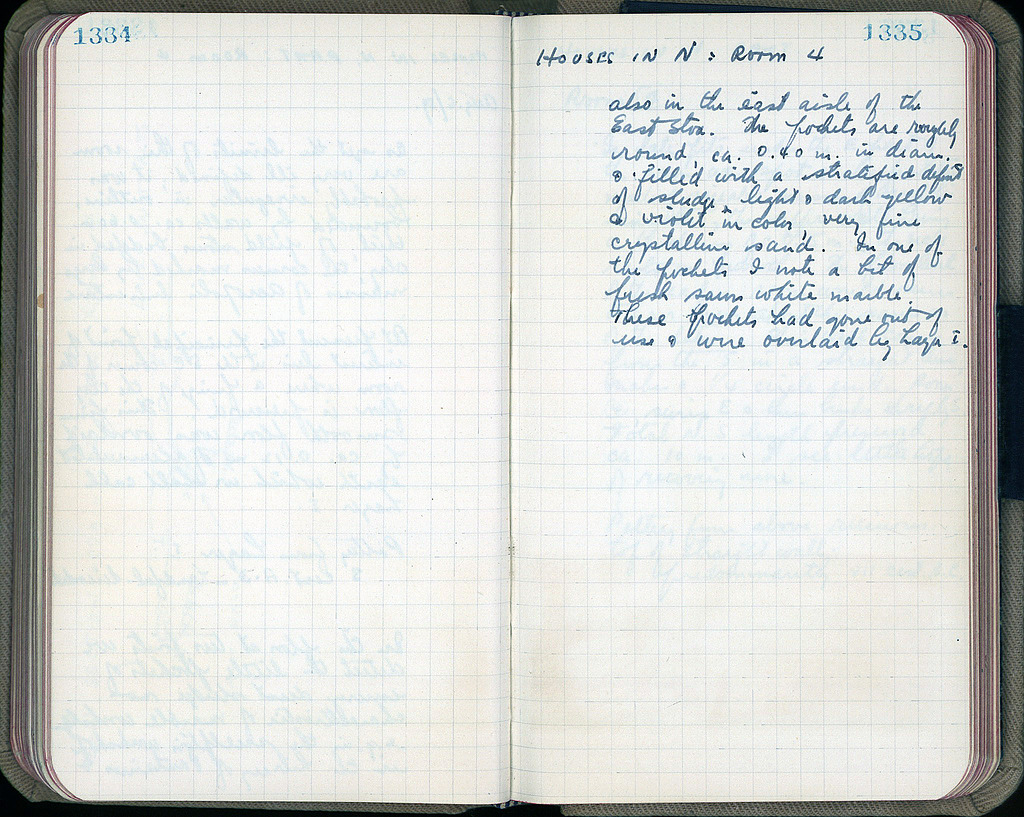 1334
1335
HOUSES IN N: ROOM 4
also in the east aisle of the
East Stoa. The pockets are roughly
round, ca. 0.40 m. in diam.
& filled with a stratified deposit
of sludge, light & dark yellow
& violet in color, very fine
crystalline sand. In one of
the pockets I note a bit of
fresh sawn white marble.
These pockets had gone out of
use & were overlaid by Layer I.